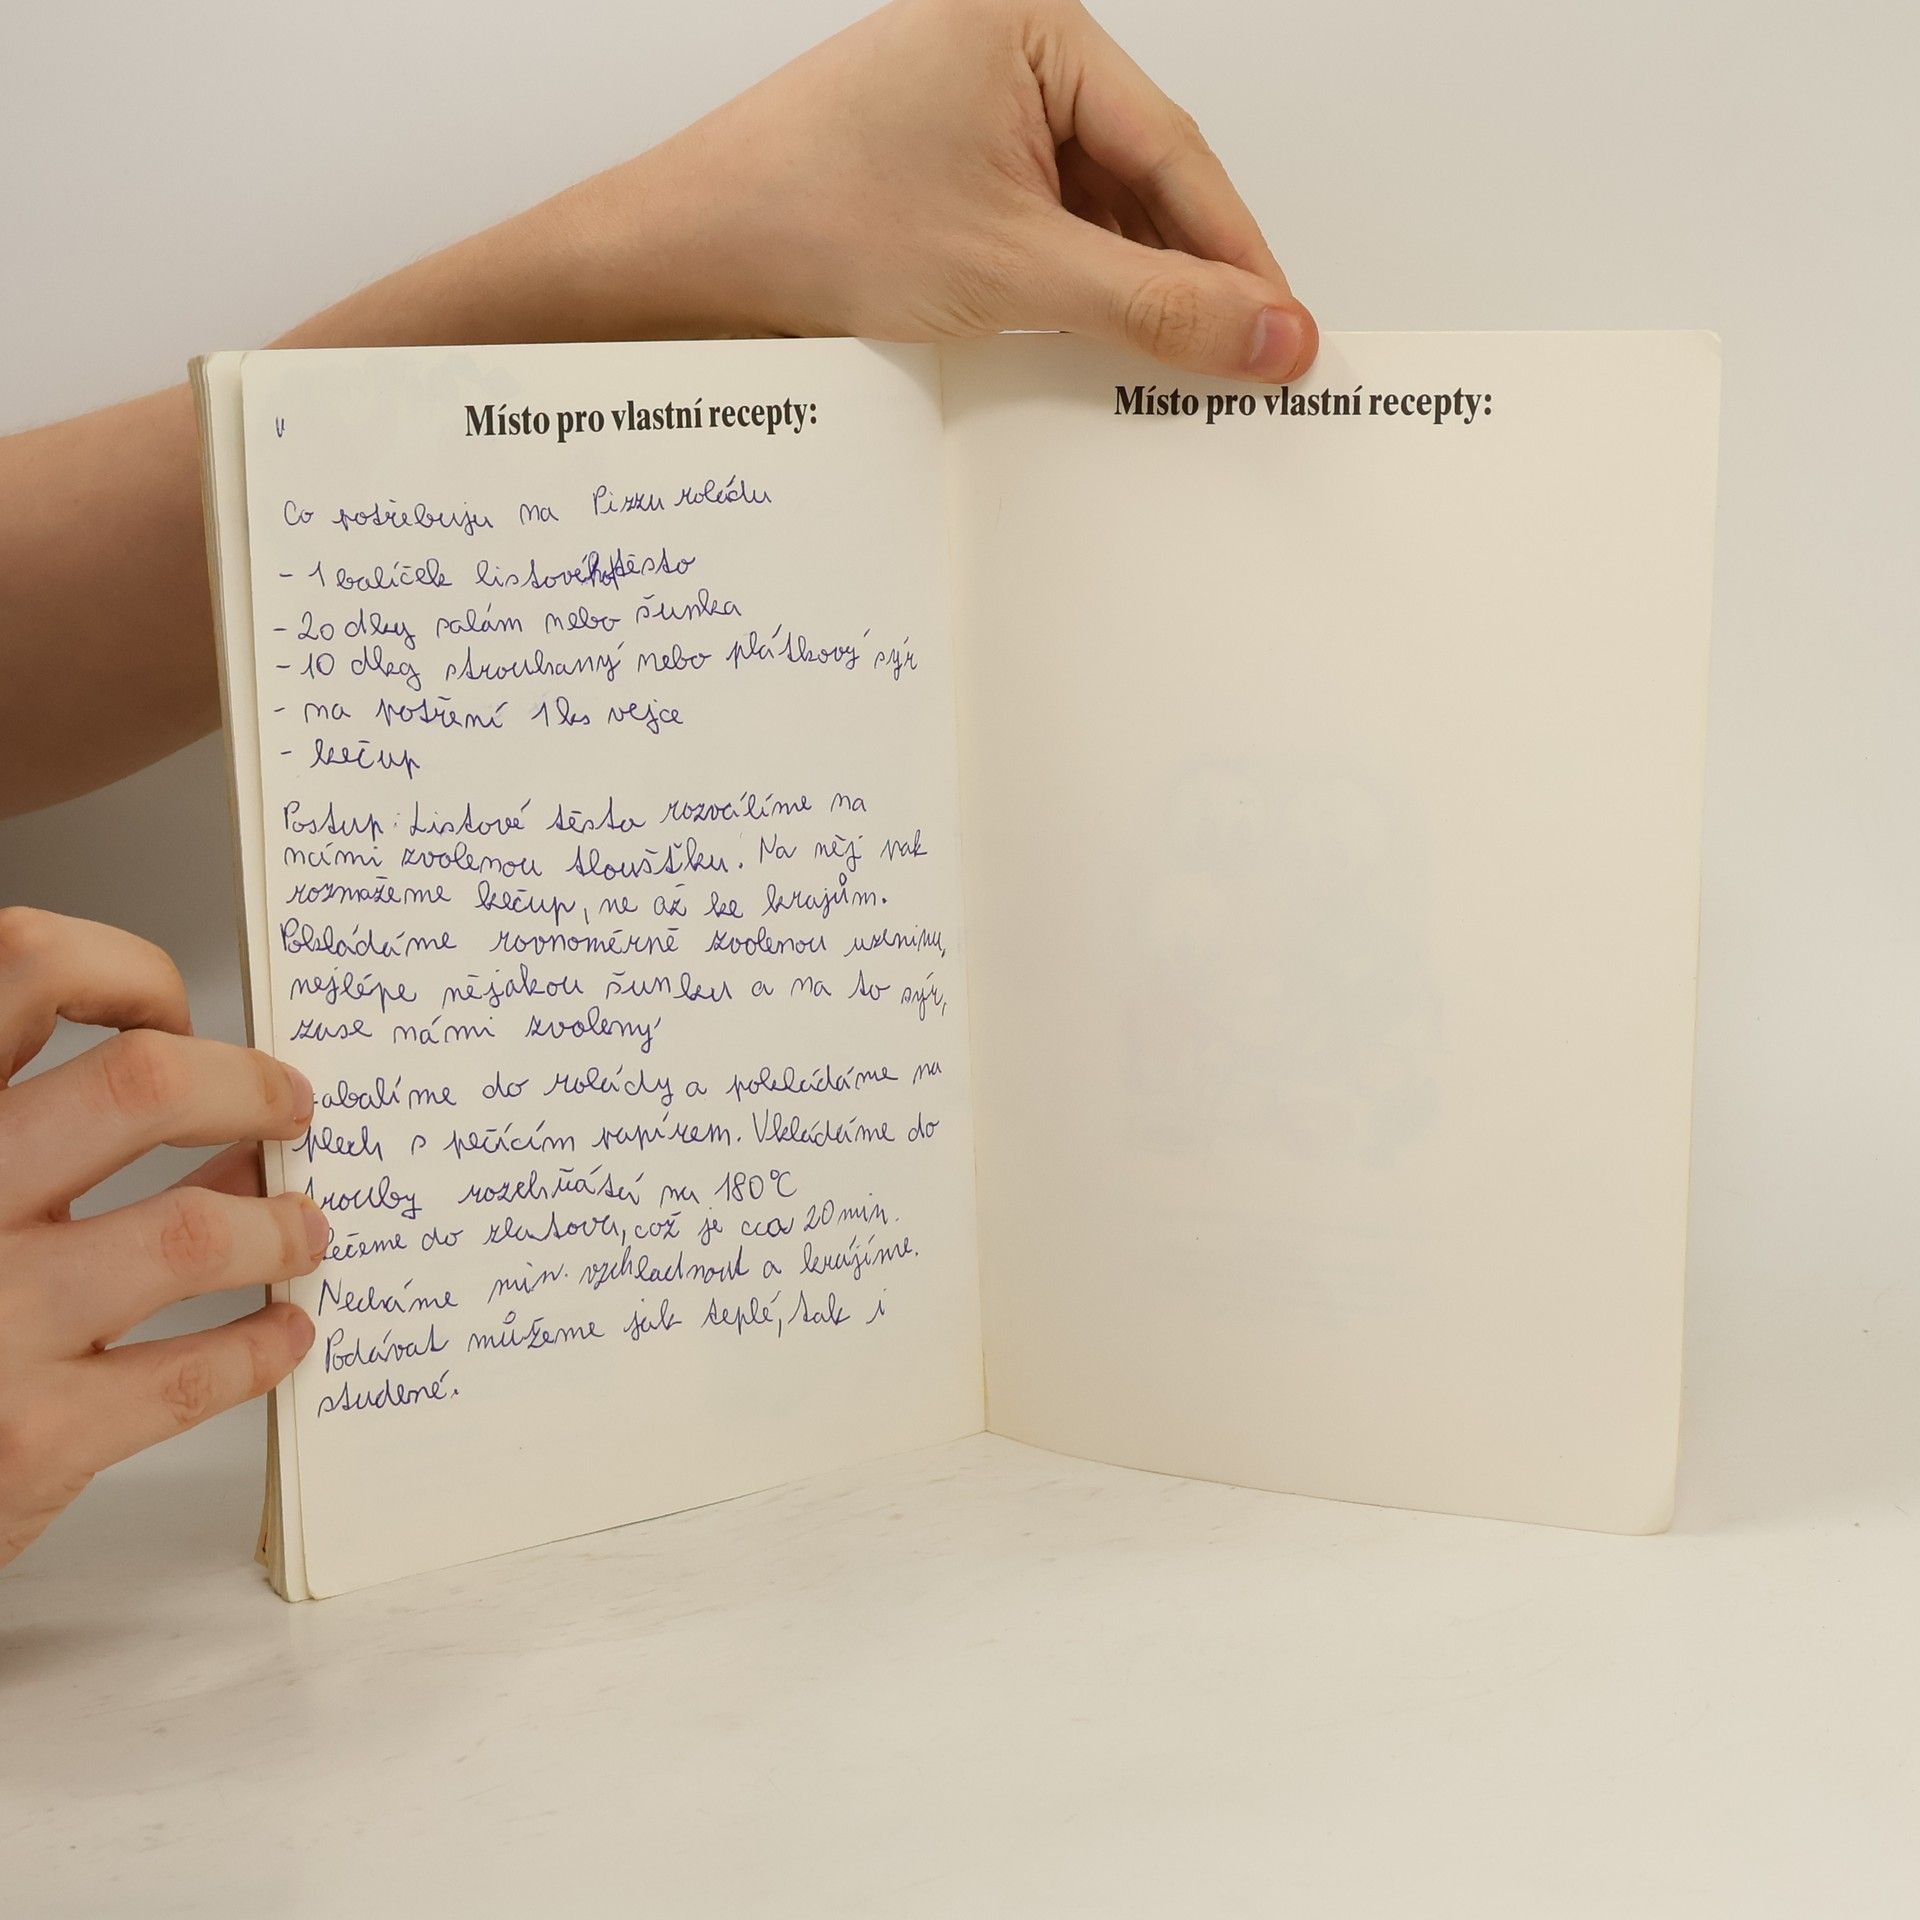 Místo pro vlastní recepty:
Co potřebuju na Pizzu roládu
- 1 balíček listového těsto
- 20 dkg salám nebo šunka
- 10 dkg strouhaný nebo plátkový sýr
- na potření 1ks vejce
- kečup
Postup: Listové těsto rozválíme na
námi zvolenou tloušťku. Na něj pak
rozmažeme kečup, ne až ke krajům.
Pokládáme rovnoměrně zvolenou uzeninu,
nejlépe nějakou šunku a na to sýr,
zase námi zvolený
zabalíme do rolády a pokládáme na
plech s pečícím papírem. Vkládáme do
trouby rozehřáté na 180°C
Pečeme do zlatova, což je cca 20 min.
Necháme min. vzchladnout a krájíme.
Podávat můžeme jak teplé, tak i
studené.
Místo pro vlastní recepty: